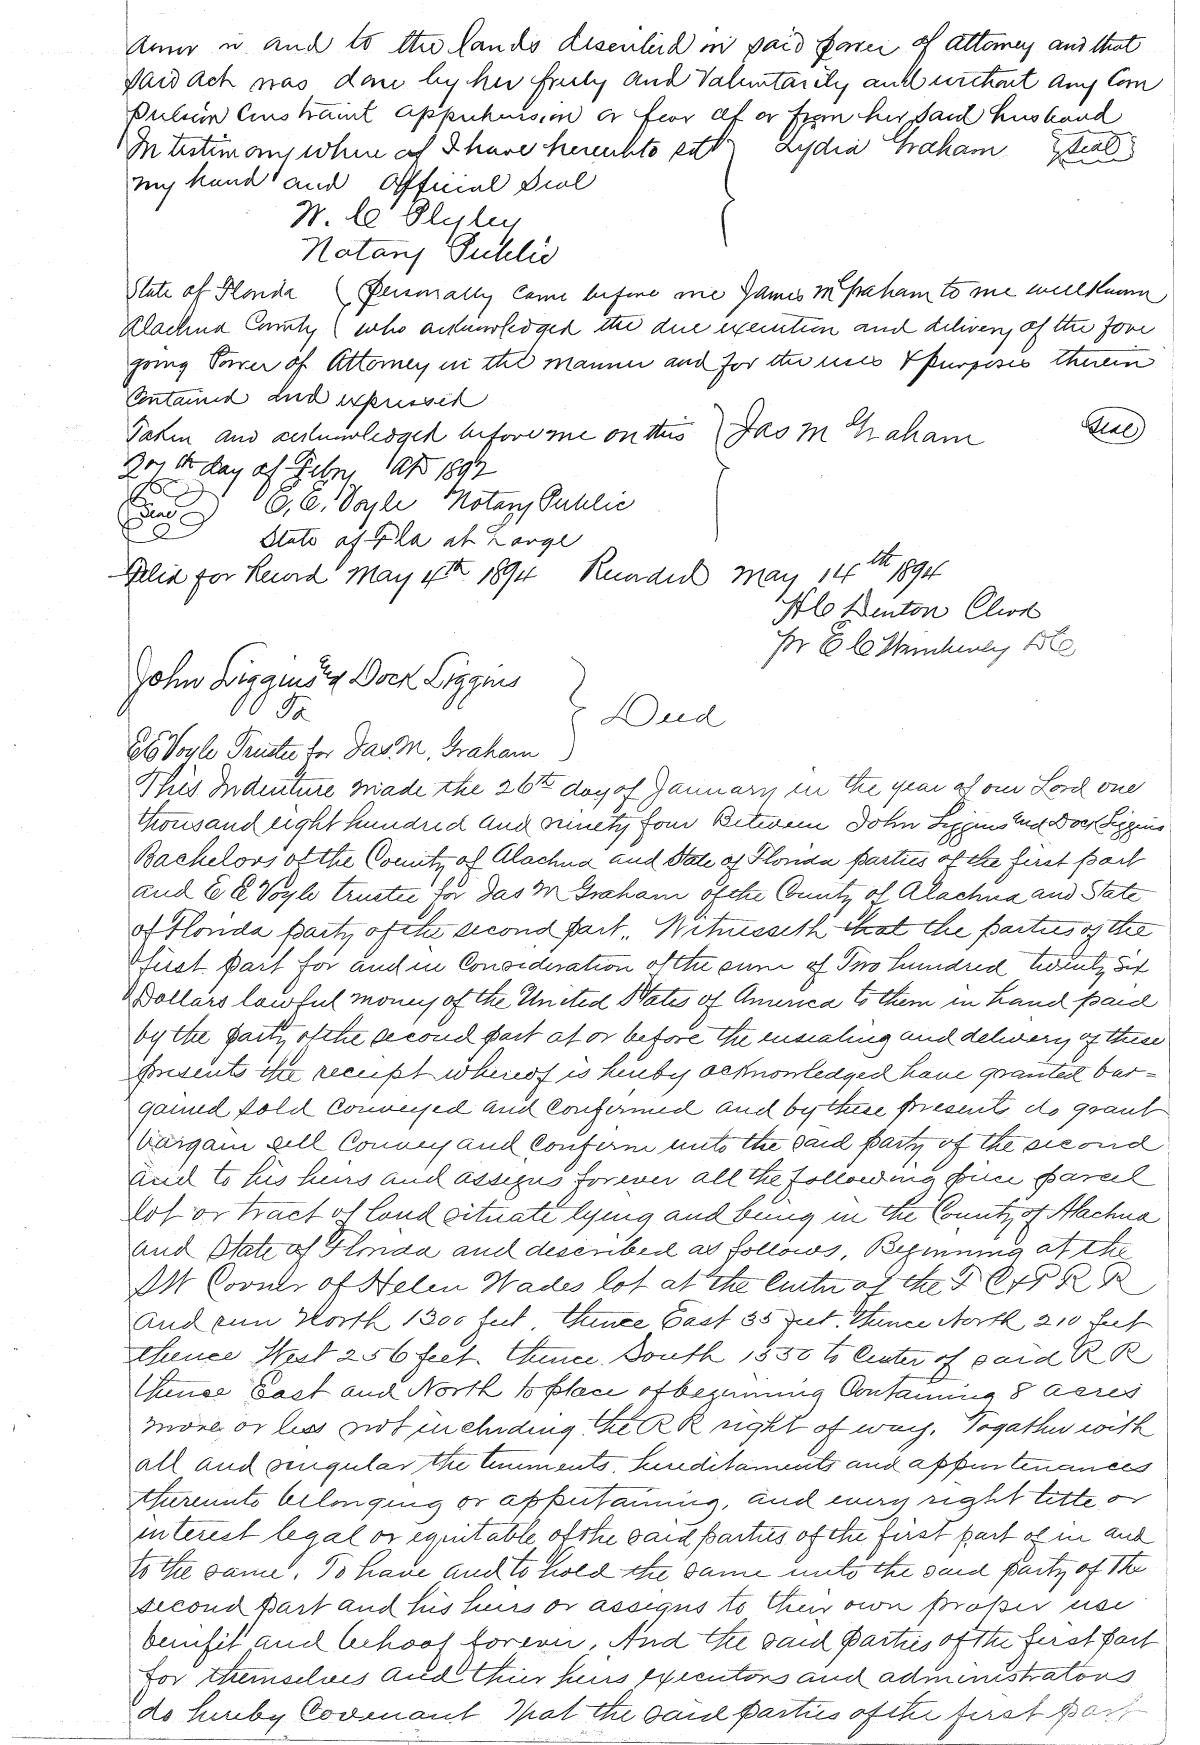 dower in and to the lands described in said power of Attorney and that
said act was done by her freely and Voluntarily and without any Com
pulsion Constraint apprehension or fear of or from her said husband
In testimony where of I have hereunto set } Lydia Graham {Seal}
my hand and Official Seal
W. C. Plyley
Notary Public
State of Florida ( Personally Came before me James M Graham to me well Known
Alachua County ( who acknowledged the due execution and delivery of the fore
going Power of Attorney in the manner and for the uses & purposes therein
Contained and expressed
Taken and acknowledged before me on this ) Jas M Graham Seal
27th day of Febry AD 1892
Seal E. E. Voyle Notary Public
State of Fla at Large
Filed for Record May 4th 1894 Recorded May 14th 1894
H C Denton Clerk
pr E C Wimberley D C
John Liggins and Dock Liggins
To } Deed
E E Voyle Trustee for Jas. M. Graham
This Indenture made the 26th day of January in the year of our Lord one
thousand eight hundred and ninety four Between John Liggins and Dock Liggins
Bachelors of the County of Alachua and State of Florida parties of the first part
and E E Voyle trustee for Jas M Graham of the County of Alachua and State
of Florida party of the second part. Witnesseth that the parties of the
first part for and in Consideration of the sum of Two hundred twenty Six
Dollars lawful money of the United States of America to them in hand paid
by the party of the second part at or before the ensealing and delivery of these
presents the receipt whereof is hereby acknowledged have granted bar=
gained sold conveyed and confirmed and by these presents do grant
bargain sell Convey and Confirm unto the said party of the second
and to his heirs and assigns forever all the following piece parcel
lot or tract of land situate lying and being in the County of Alachua
and State of Florida and described as follows, Beginning at the
SW Corner of Helen Wades lot at the Center of the F C & P R R
and run North 1300 feet. thence East 35 feet. Thence North 210 feet
thence West 256 feet. thence South 1550 to Center of said R R
thence East and North to place of beginning Containing 8 acres
more or less not including the R R right of way. Togather with
all and singular the tenements, hereditaments and appurtenances
thereunto belonging or appertaining, and every right title or
interest legal or equitable of the said parties of the first part of in and
to the same. To have and to hold the same unto the said party of the
second part and his heirs or assigns to their own proper use
benifit and behoof forever. And the said parties of the first part
for themselves and thier heirs executors and administrators
do hereby Covenant That the said parties of the first part